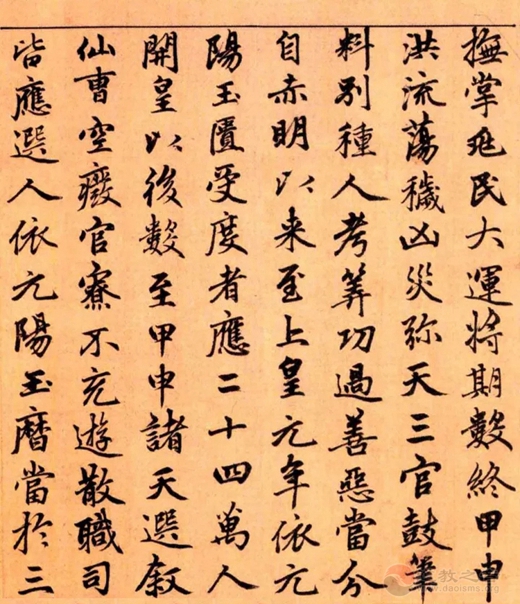 撫掌兆民大運將期數終甲申
洪流蕩穢凶災弥天三官鼓筆
料別種人考筭功過善惡當分
自赤明以来至上皇元年依元
陽玉匱受度者應二十四萬人
開皇以後數至甲申諸天選叙
仙曹空廢官寮不充遊散職司
皆應選人依元陽玉曆當於三
daoisms.org